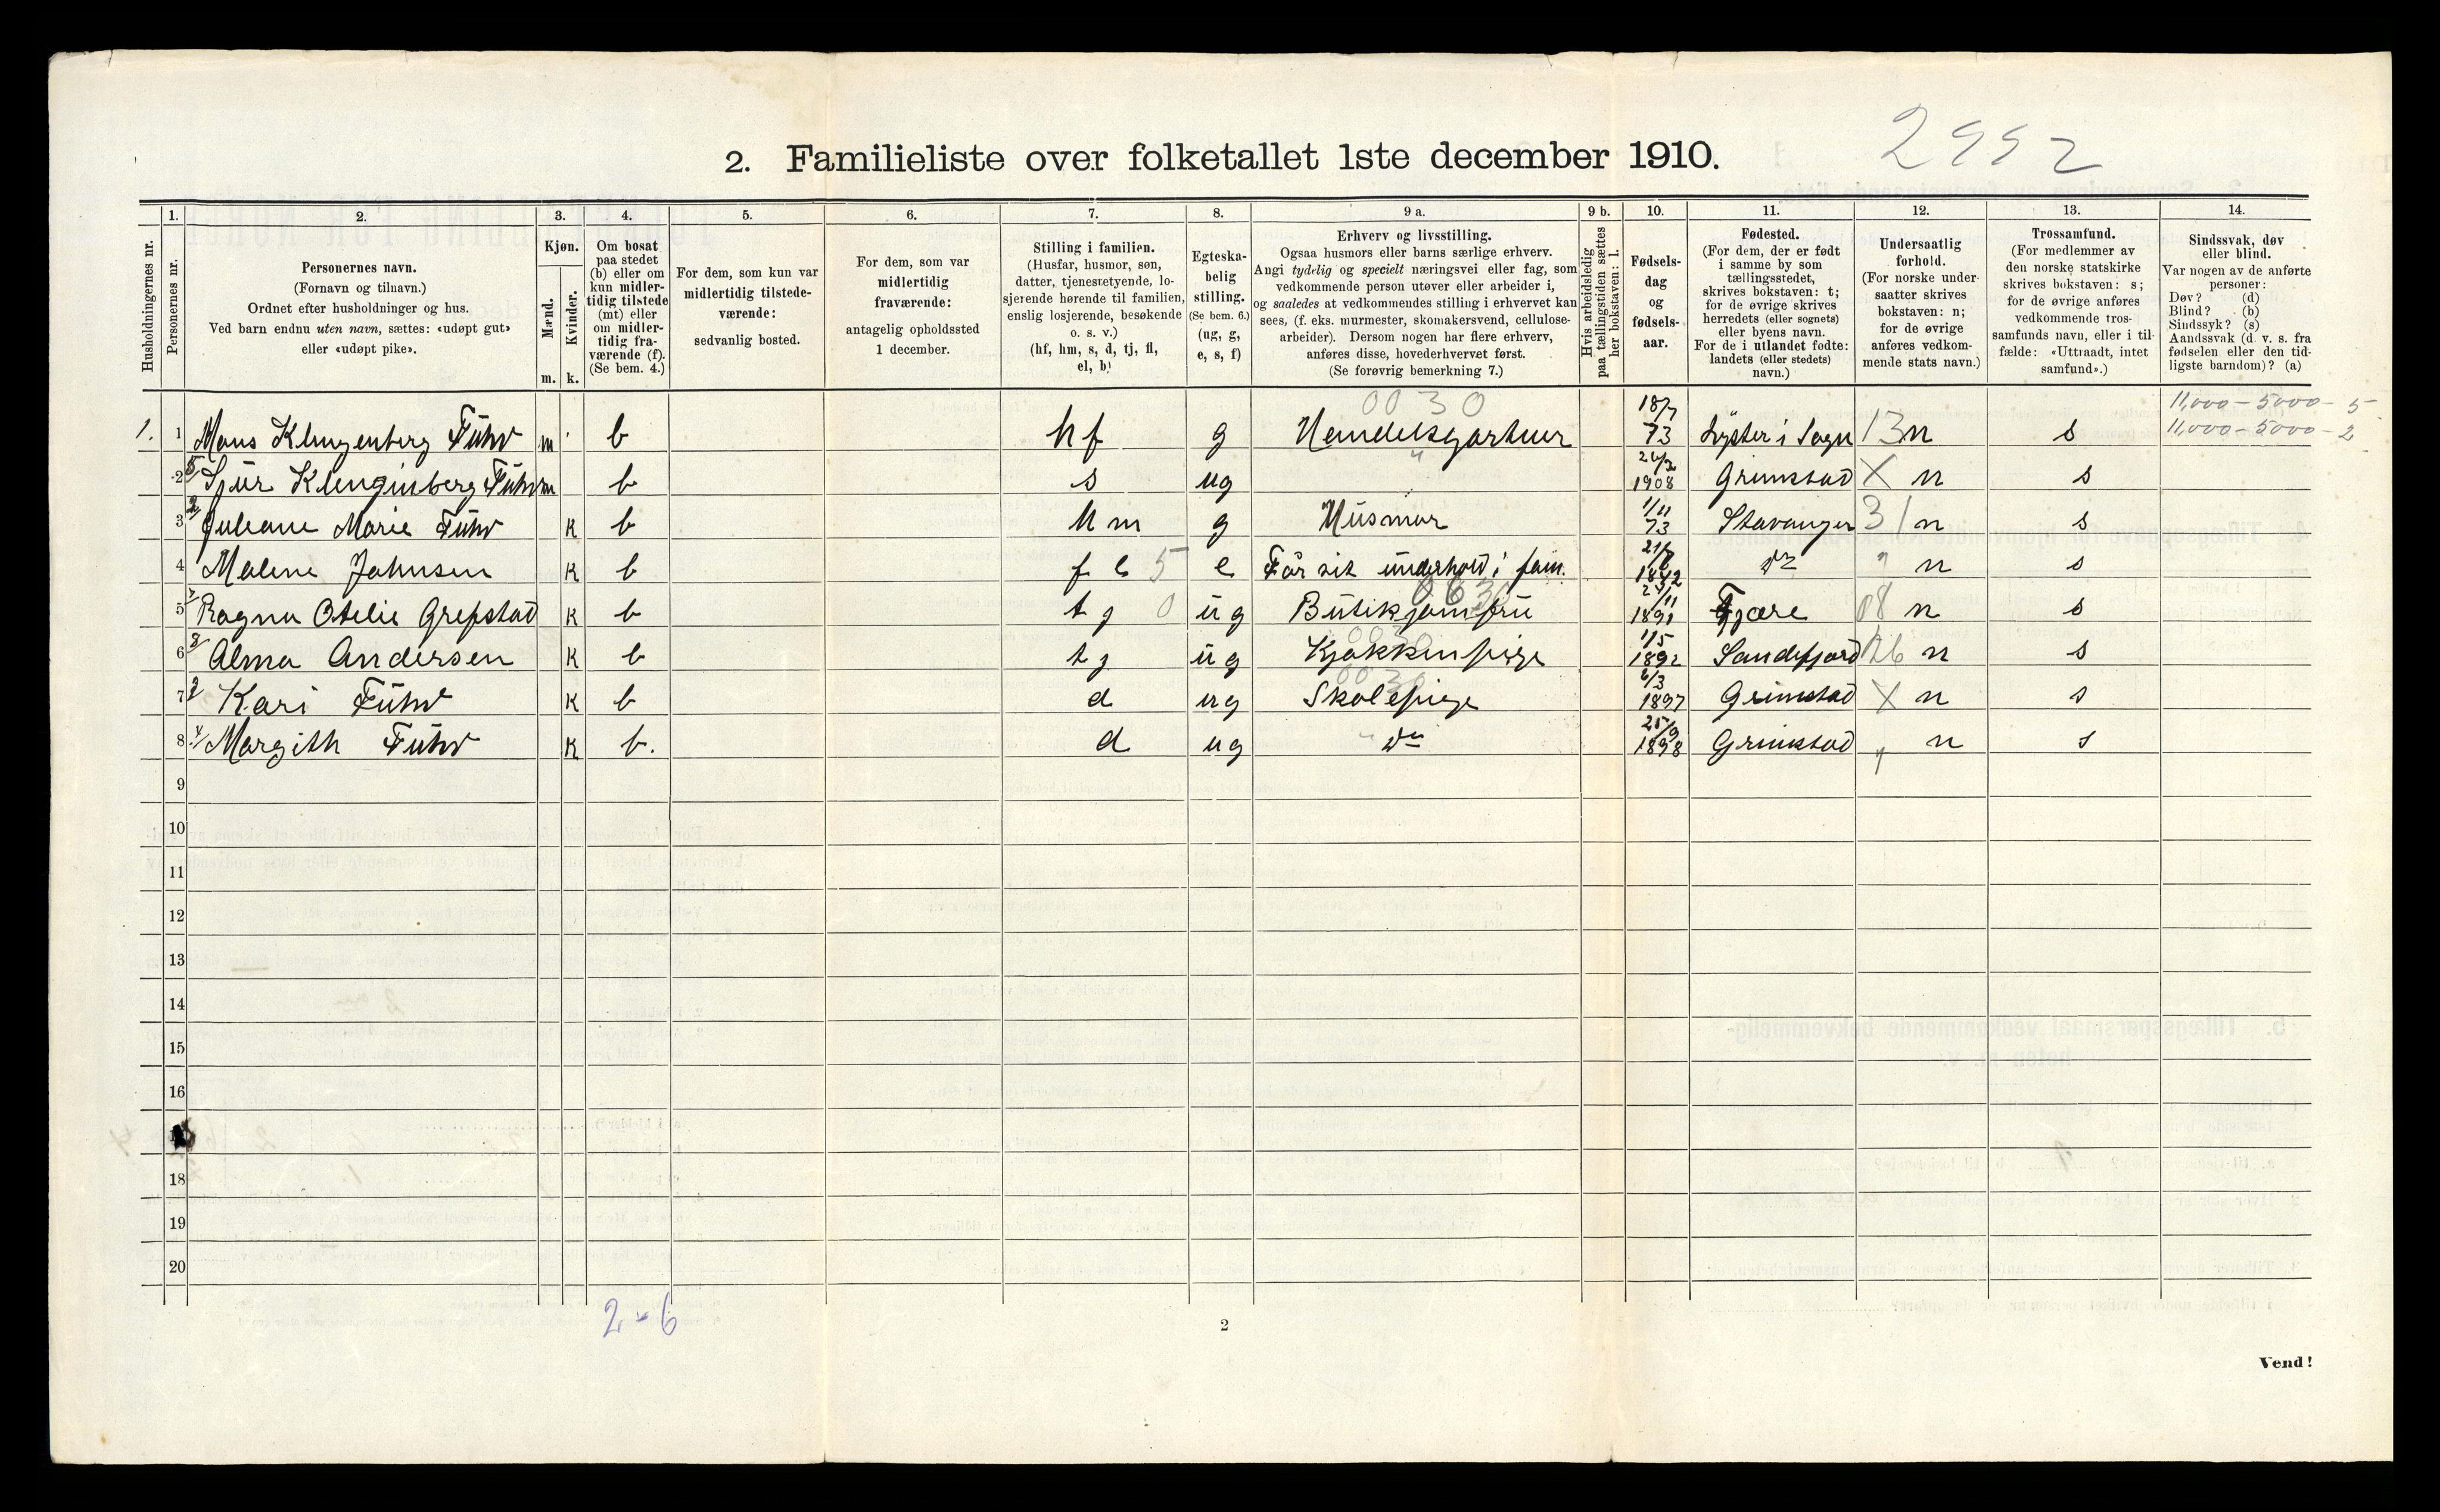 2. Familieliste over folketallet 1ste december 1910.
Husholdningernes nr.
1. Personernes nr.
2. Personernes navn.
(Fornavn og tilnavn.)
Ordnet efter husholdninger og hus.
Ved barn endnu uten navn, sættes: «udøpt gut»
eller «udøpt pike».
3. Kjøn.
Mænd. m.
Kvinder. k.
4. Om bosat
paa stedet
(b) eller om
kun midler-
tidig tilstede
(mt) eller
om midler-
tidig fra-
værende (f).
(Se bem. 4.)
5. For dem, som kun var
midlertidig tilstede-
værende:
sedvanlig bosted.
6. For dem, som var
midlertidig
fraværende:
antagelig opholdssted
1 december.
7. Stilling i familien.
(Husfar, husmor, søn,
datter, tjenestetyende, lo-
sjerende hørende til familien,
enslig losjerende, besøkende
o. s. v.)
(hf, hm, s, d, tj, fl,
el, b)
8. Egteska-
belig
stilling.
(Se bem. 6.)
(ug, g,
e, s, f)
9 a. Erhverv og livsstilling.
Ogsaa husmors eller barns særlige erhverv.
Angi tydelig og specielt næringsvei eller fag, som
vedkommende person utøver eller arbeider i,
og saaledes at vedkommendes stilling i erhvervet kan
sees, (f. eks. murmester, skomakersvend, cellulose-
arbeider). Dersom nogen har flere erhverv,
anføres disse, hovederhvervet først.
(Se forøvrig bemerkning 7.)
9 b. Hvis arbeidsledig
paa tællingstiden sættes
her bokstaven: l.
10. Fødsels-
dag
og
fødsels-
aar.
11. Fødested.
(For dem, der er født
i samme by som
tællingsstedet,
skrives bokstaven: t;
for de øvrige skrives
herredets (eller sognets)
eller byens navn.
For de i utlandet fødte:
landets (eller stedets)
navn.)
12. Undersaatlig
forhold.
(For norske under-
saatter skrives
bokstaven: n;
for de øvrige
anføres vedkom-
mende stats navn.)
13. Trossamfund.
(For medlemmer av
den norske statskirke
skrives bokstaven: s;
for de øvrige anføres
vedkommende tros-
samfunds navn, eller i til-
fælde: «Uttraadt, intet
samfund».)
14. Sindssvak, døv
eller blind.
Var nogen av de anførte
personer:
Døv? (d)
Blind? (b)
Sindssyk? (s)
Aandssvak (d. v. s. fra
fødselen eller den tid-
ligste barndom)? (a)
0030 11,000 - 5000 - 5
1. 1 Mons Klingenberg Fuhr m b hf g Handelsgartner 18/7 73 Lyster i Sogn 13 n s 11,000 - 5000 - 2
2 Sjur Klingenberg Fuhr m b s ug " 1908 Grimstad X n s
3 Juliane Marie Fuhr k b hm g Husmor 1/11 73 Stavanger 31 n s
4 Malene Johnsen k b fl 5 e Får sit underhold i fam. 1842 do " n s
5 Ragna Otelie Grefstad k b tj 0 ug Butikjomfru 1891 Fjære 08 n s
6 Alma Andersen k b tj ug Kjøkkenpige 0030 1/5 1892 Sandefjord n s
7 Kari Fuhr k b d ug Skolepige 0030 6/3 1897 Grimstad X n s
8 Margith Fuhr k b. d ug " do 25/9 1898 Grimstad " n s
9
10
11
12
13
14
15
16
18
19
20
2-6
2
Vend!